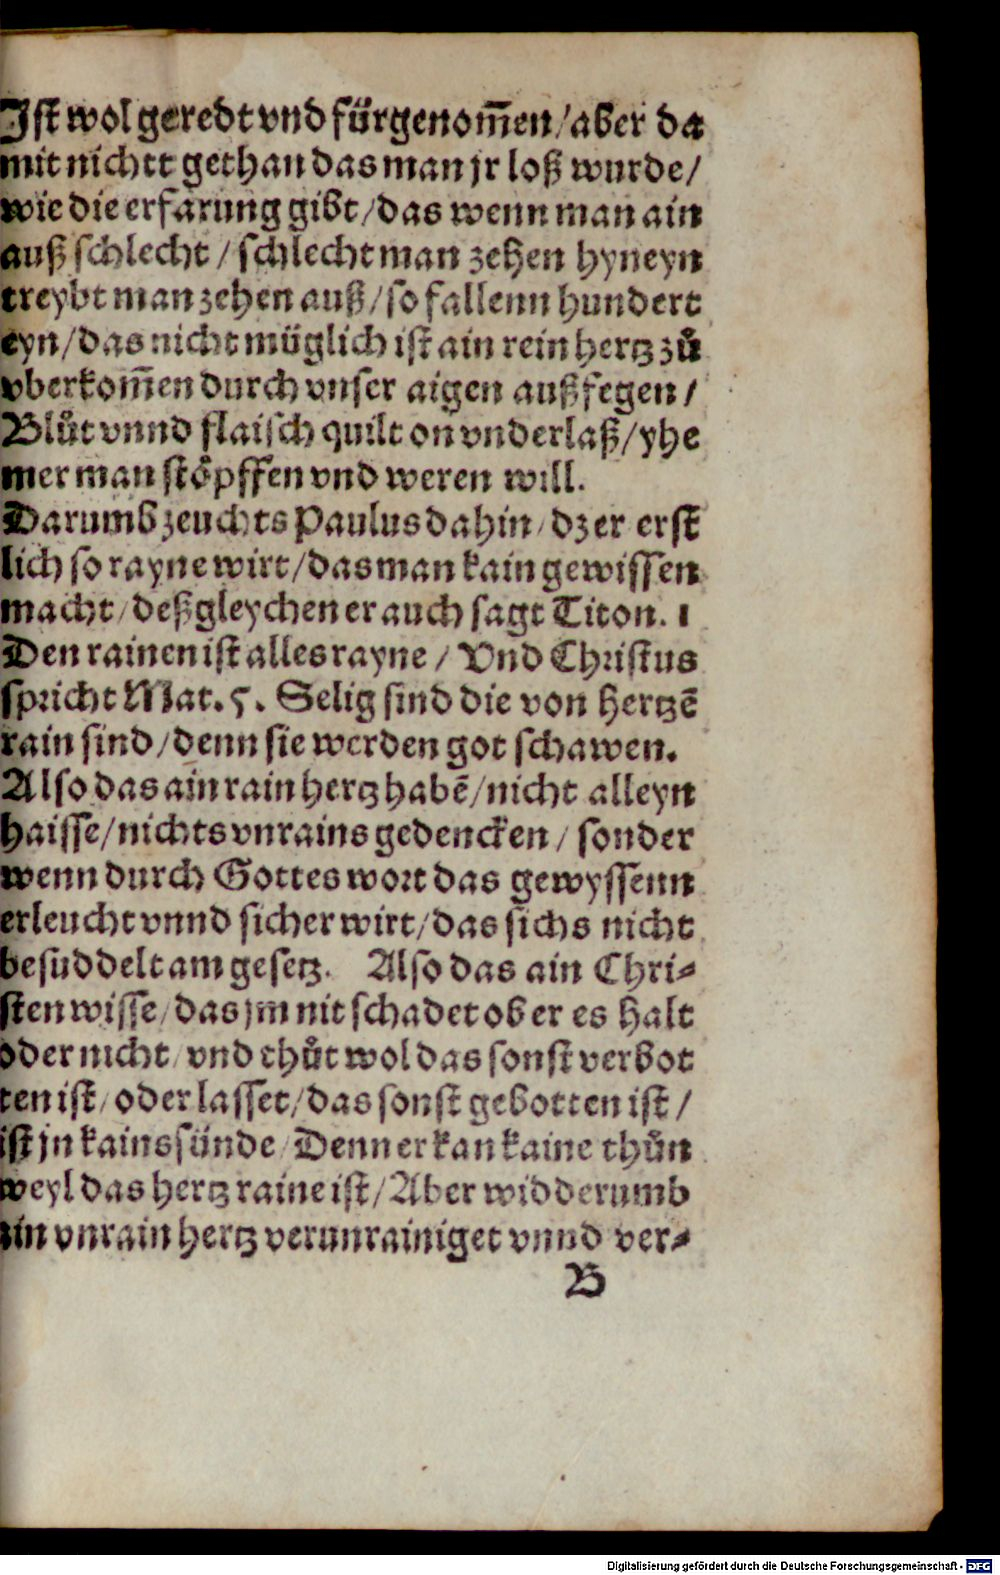 Jst wol geredt vnd fürgenom̄en / aber da
mit nichtt gethan das man jr loß wurde /
wie die erfarung gibt / das wenn man ain
auß schlecht / schlecht man zehen hyneyn
treybt man zehen auß / so fallenn hundert
eyn / das nicht müglich ist ain rein hertz zů
vberkom̄en durch vnser aigen außfegen /
Blůt vnnd flaisch quilt on vnderlaß / yhe
mer man stöpffen vnd weren will.
Darumb zeuchts Paulus dahin / dz er erst
lich so rayne wirt / das man kain gewissen
macht / deßgleychen er auch sagt Titon. 1
Den rainen ist alles rayne / Vnd Christus
spricht Mat. 5. Selig sind die von hertzē
rain sind / denn sie werden got schawen.
Also das ain rain hertz habē / nicht alleyn
haisse / nichts vnrains gedencken / sonder
wenn durch Gottes wort das gewyssenn
erleucht vnnd sicher wirt / das sichs nicht
besuddelt am gesetz. Also das ain Chri⸗
sten wisse / das jm nit schadet ob er es halt
oder nicht / vnd thůt wol das sonst verbot
ten ist / oder lasset / das sonst gebotten ist /
ist jn kains sünde / Denn er kan kaine thůn
weyl das hertz raine ist / Aber widderumb
ain vnrain hertz verunrainiget vnnd ver⸗
B
Digitalisierung gefördert durch die Deutsche Forschungsgemeinschaft - DFG